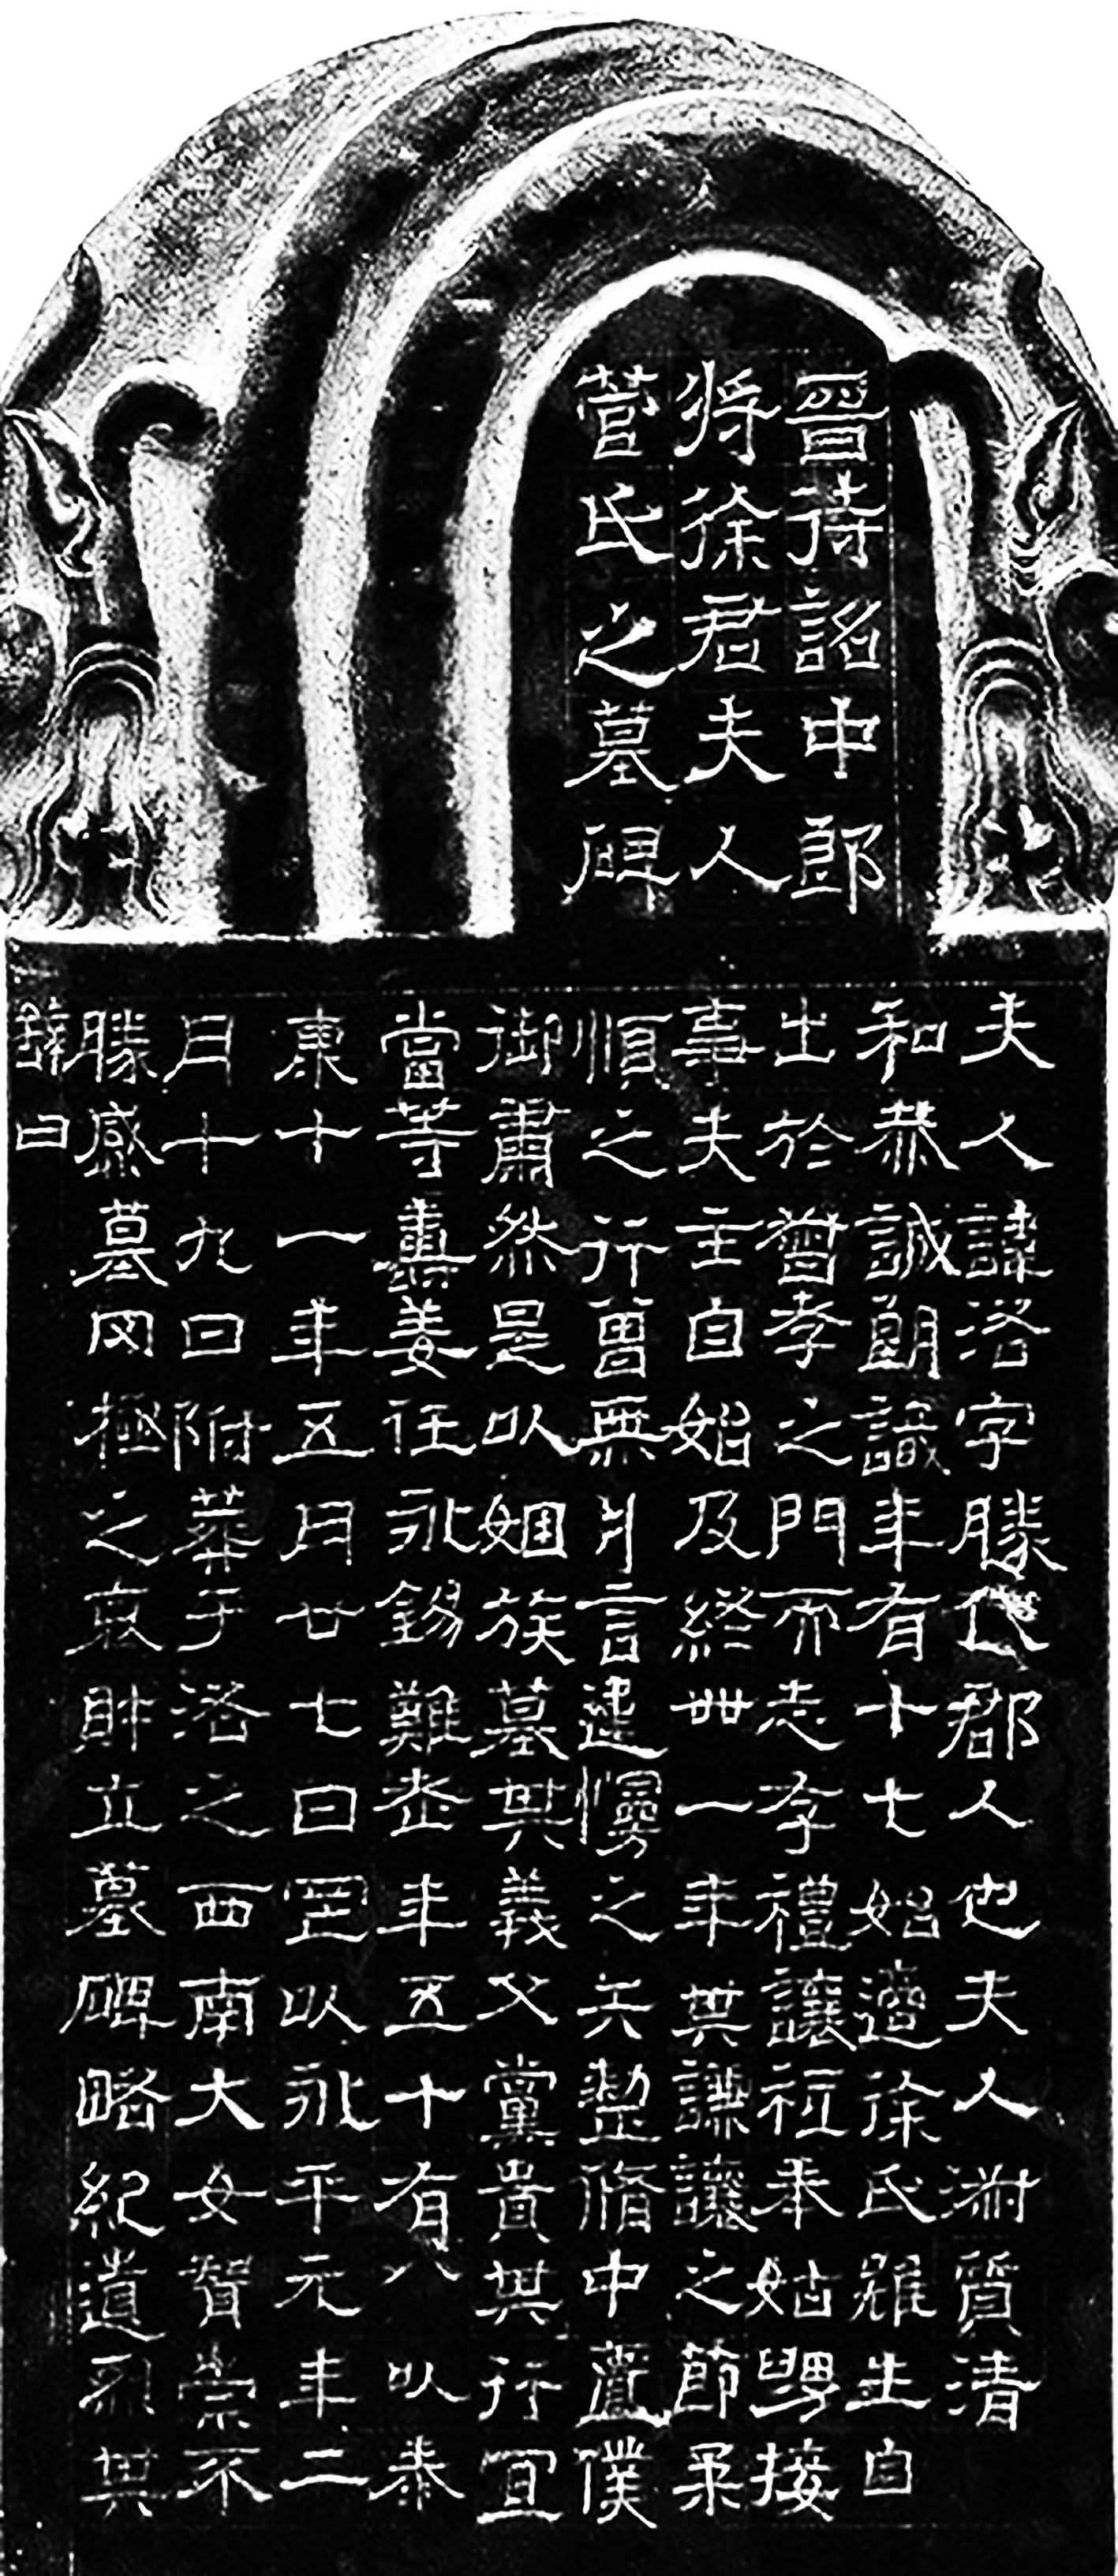 晉待詔中郎
將徐君夫人
菅氏之墓碑
夫人諱洛字勝代郡人也夫人淑質清
和恭誠朗識年有十七始適徐氏雖生自
出於督孝之門而志存禮讓祗奉姑舅接
事夫主自始及終卅一年其謙讓之節柔
順之行曾無片言違慢之矣整脩中匱僕
御肅然是以姻族慕其義父黨貴其行宜
當等壽姜任永錫難老年五十有八以泰
康十一年五月廿七日罡以永平元年二
月十九日附葬于洛之西南大女智崇不
勝感慕罔極之哀財立墓碑略紀遺烈其
辭曰